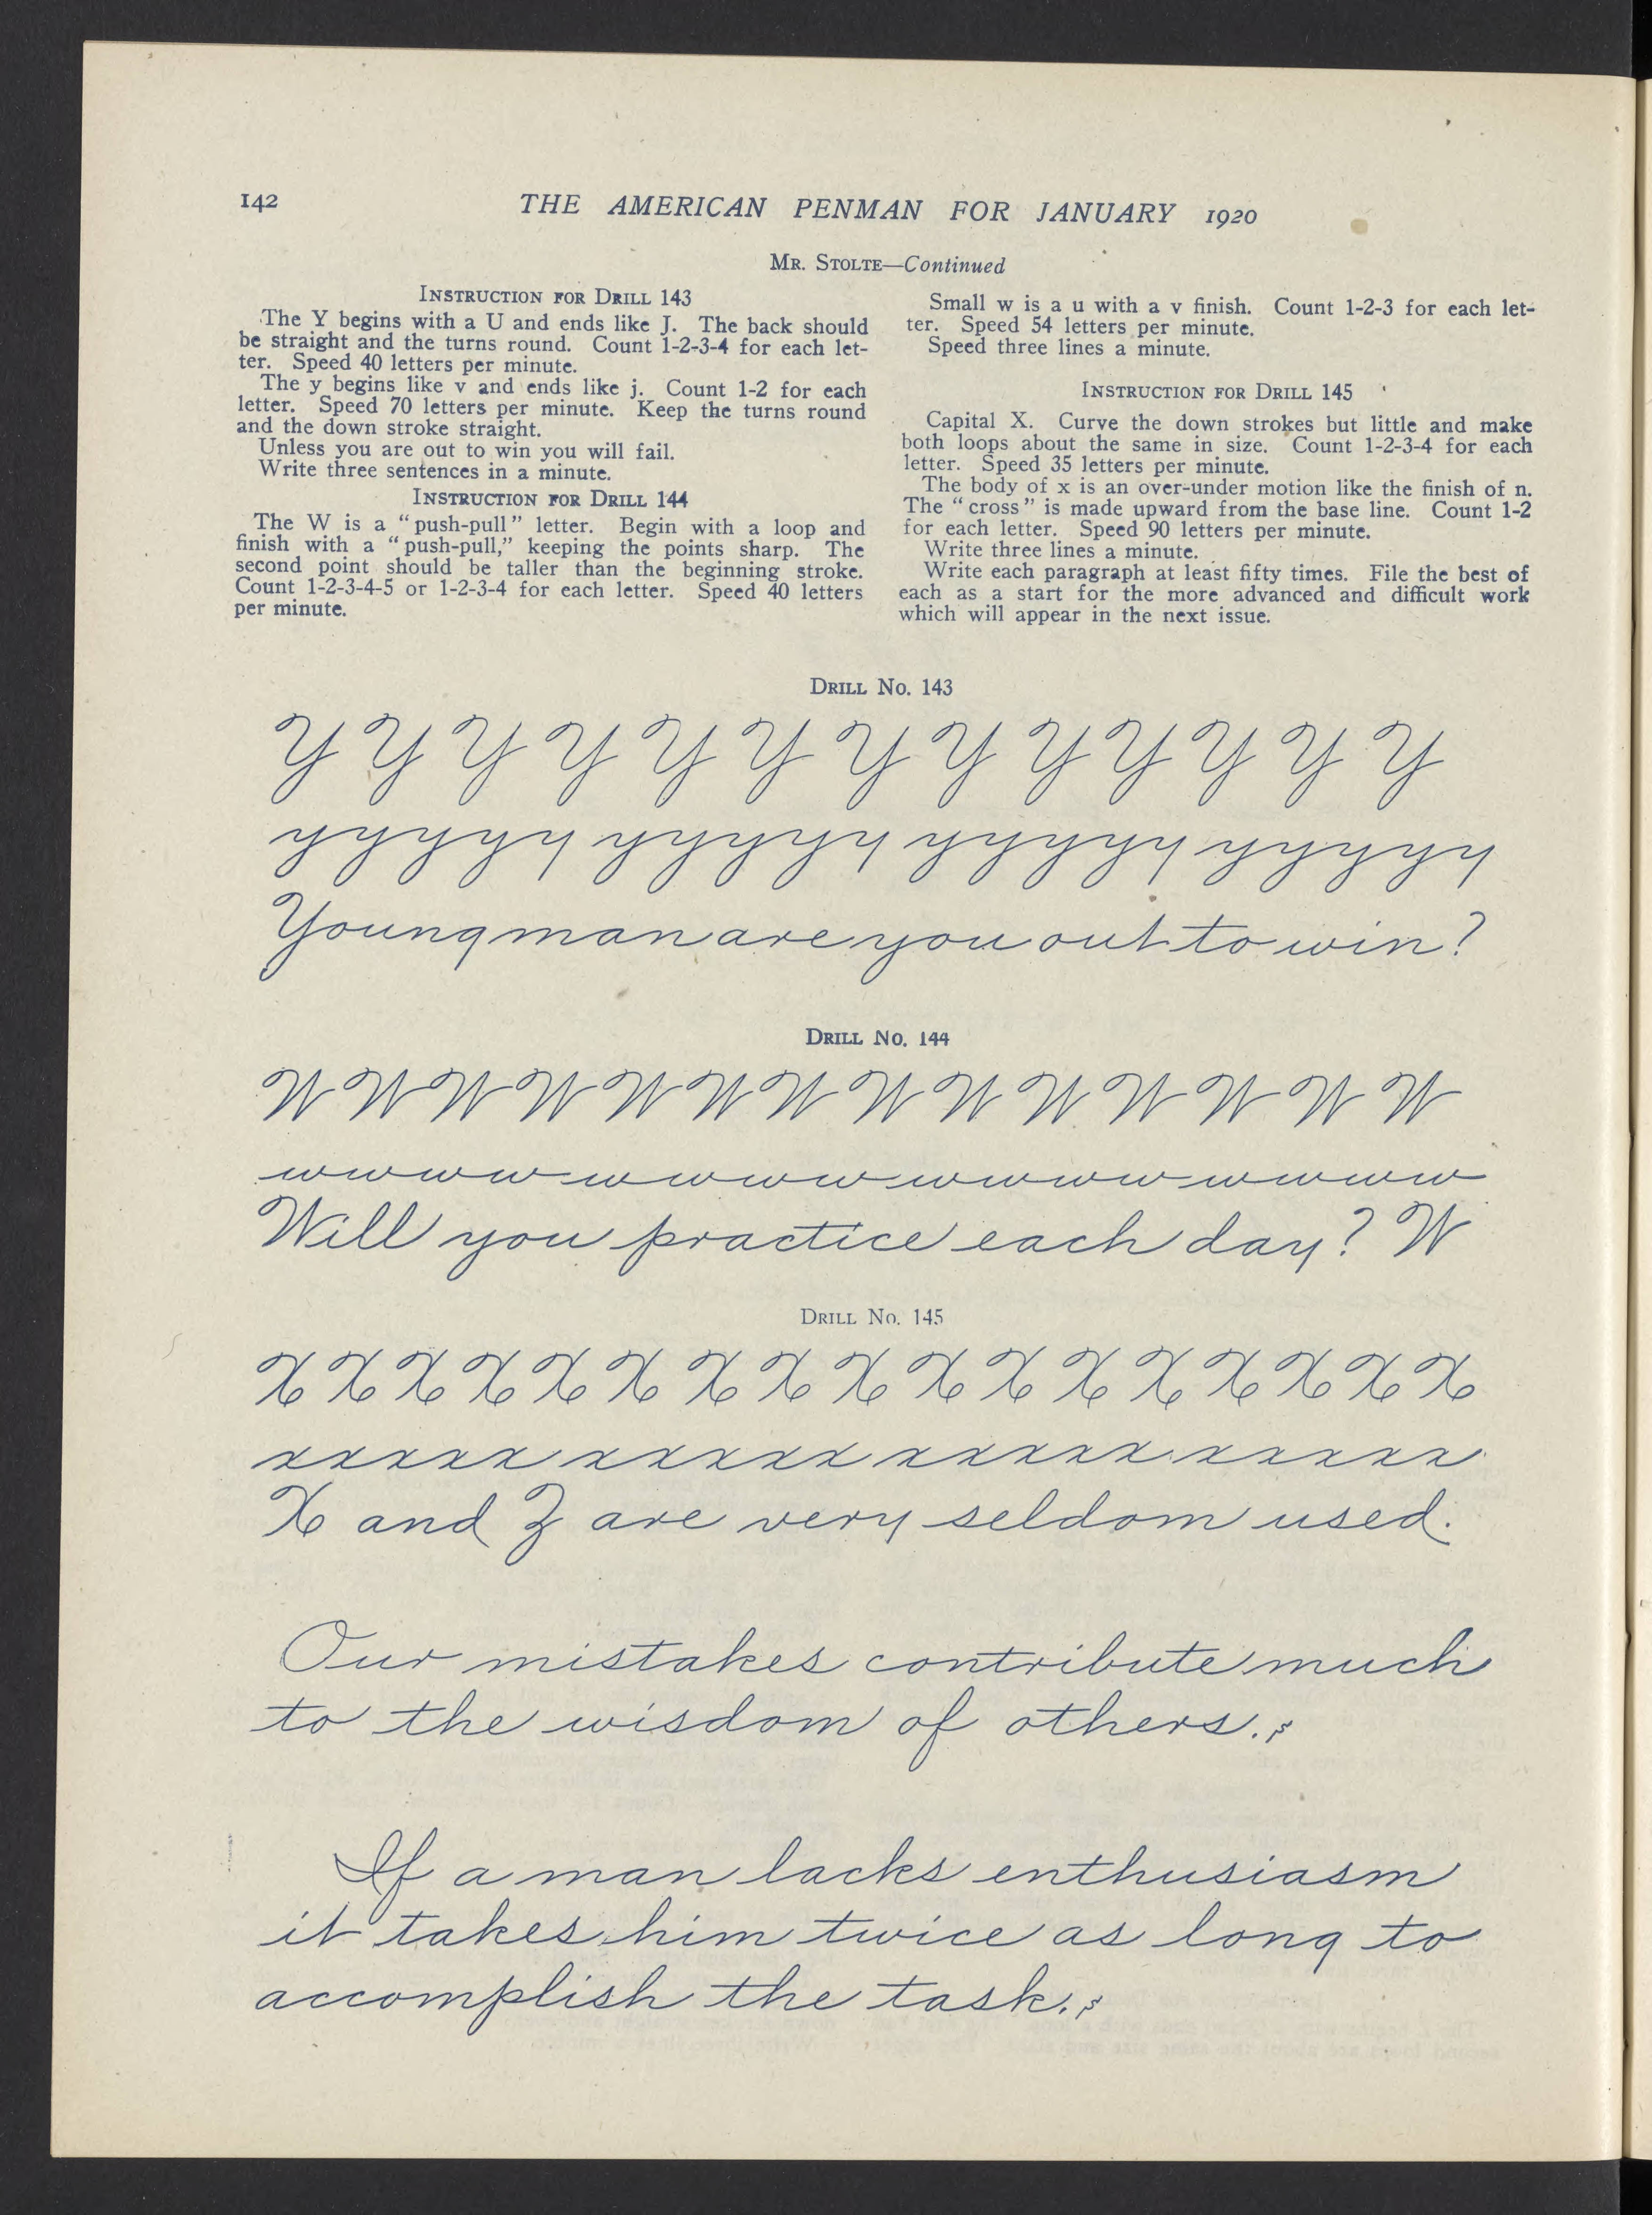 142
THE AMERICAN PENMAN FOR JANUARY 1920
MR. STOLTE—Continued
INSTRUCTION FOR DRILL 143
The Y begins with a U and ends like J. The back should
be straight and the turns round. Count 1-2-3-4 for each let-
ter. Speed 40 letters per minute.
The y begins like v and ends like j. Count 1-2 for each
letter. Speed 70 letters per minute. Keep the turns round
and the down stroke straight.
Unless you are out to win you will fail.
Write three sentences in a minute.
INSTRUCTION FOR DRILL 144
The W is a "push-pull" letter. Begin with a loop and
finish with a "push-pull," keeping the points sharp. The
second point should be taller than the beginning stroke.
Count 1-2-3-4-5 or 1-2-3-4 for each letter. Speed 40 letters
per minute.
Small w is a u with a v finish. Count 1-2-3 for each let-
ter. Speed 54 letters per minute.
Speed three lines a minute.
INSTRUCTION FOR DRILL 145
Capital X. Curve the down strokes but little and make
both loops about the same in size. Count 1-2-3-4 for each
letter. Speed 35 letters per minute.
The body of x is an over-under motion like the finish of n.
The "cross" is made upward from the base line. Count 1-2
for each letter. Speed 90 letters per minute.
Write three lines a minute.
Write each paragraph at least fifty times. File the best of
each as a start for the more advanced and difficult work
which will appear in the next issue.
DRILL NO. 143
Y Y Y Y Y Y Y Y Y Y Y Y Y
yyyyyy yyyyyy yyyyyy yyyyyy
Young man are you out to win?
DRILL NO. 144
W W W W W W W W W W W W W W
wwww wwww wwww wwww
Will you practice each day? W
DRILL NO. 145
X X X X X X X X X X X X X X X X X
xxxxx xxxxx xxxxx xxxxx
X and Z are very seldom used.
Our mistakes contribute much
to the wisdom of others.
If a man lacks enthusiasm
it takes him twice as long to
accomplish the task.